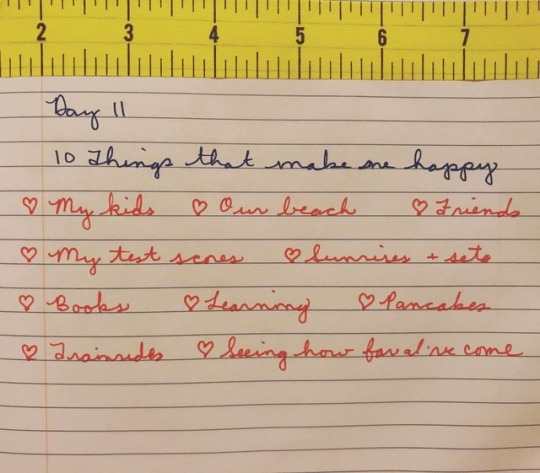 2 3 4 5 6 7
Day 11
10 Things that make me happy
♡ My kids ♡ Our beach ♡ Friends
♡ My test scores ♡ Sunrises + sets
♡ Books ♡ Learning ♡ Pancakes
♡ Trainrides ♡ Seeing how far I've come